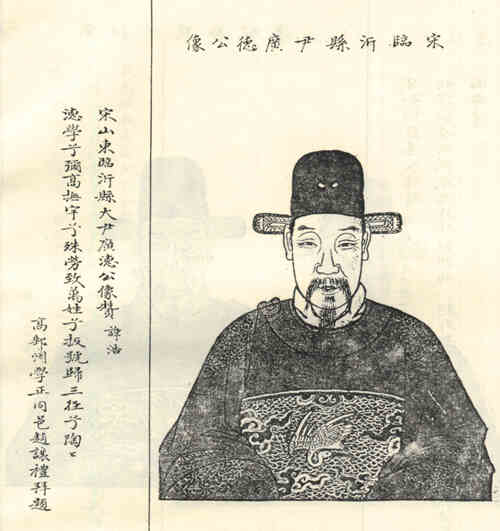 宋臨沂縣尹廣德公像
宋山東臨沂縣大尹廣德公像贊 諱浩
德學兮彌高撫字兮殊勞致萬姓兮扳號歸三徑兮陶々
高郵州學正同邑趙讓禮拜題